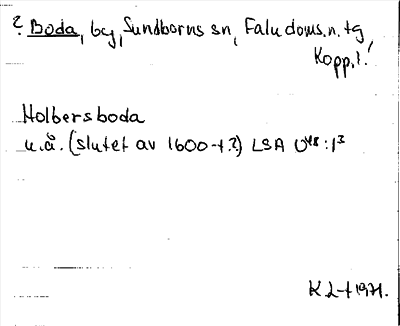 ? Boda, by, Sundborns sn, Falu doms.n. tg
Kopp. l.
Holbersboda
u.å. (slutet av 1600-t?) LSA U48:1³
1971.